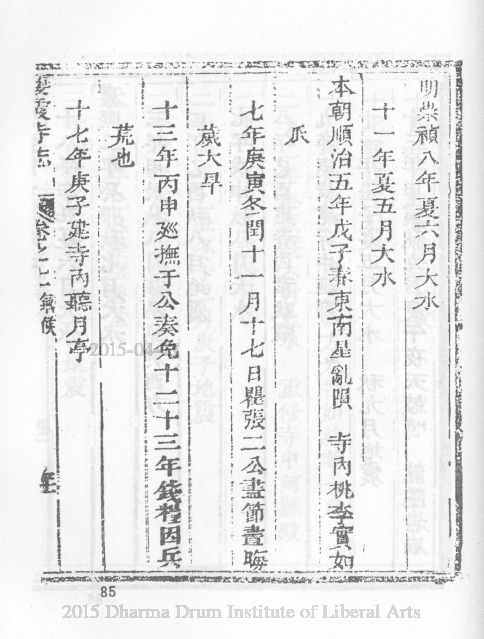 明崇禎八年夏六月大水
十一年夏五月大水
本朝順治五年戊子春東南星亂隕　寺內桃李實如
瓜
七年庚寅冬閏十一月十七日瞿張二公盡節晝晦
歲大旱
十三年丙申廵撫于公奏免十二十三年錢糧因兵
荒也
十七年庚子建寺內聽月亭
棲霞寺志　卷之上　氣候
2015-04
85
2015 Dharma Drum Institute of Liberal Arts